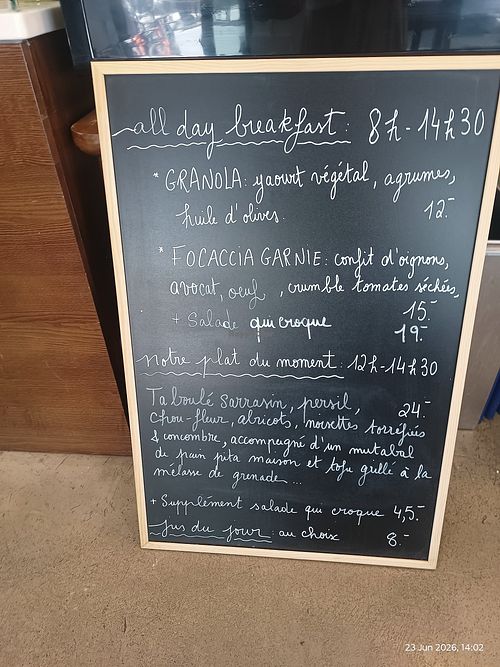 all day breakfast : 8h - 14h30
* GRANOLA : yaourt végétal, agrumes,
huile d'olives. 12.-
* FOCACCIA GARNIE : confit d'oignons,
avocat, oeuf , crumble tomates séchées,
15.-
+ Salade qui croque 19.-
notre plat du moment : 12h - 14h30
Taboulé sarrasin, persil, 24.-
chou-fleur, abricots, noisettes torréfiés
& concombre, accompagné d'un mutabal
de pain pita maison et tofu grillé à la
mélasse de grenade...
+ Supplément salade qui croque 4,5.-
jus du jour : au choix 8.-
23 Jun 2026, 14:02